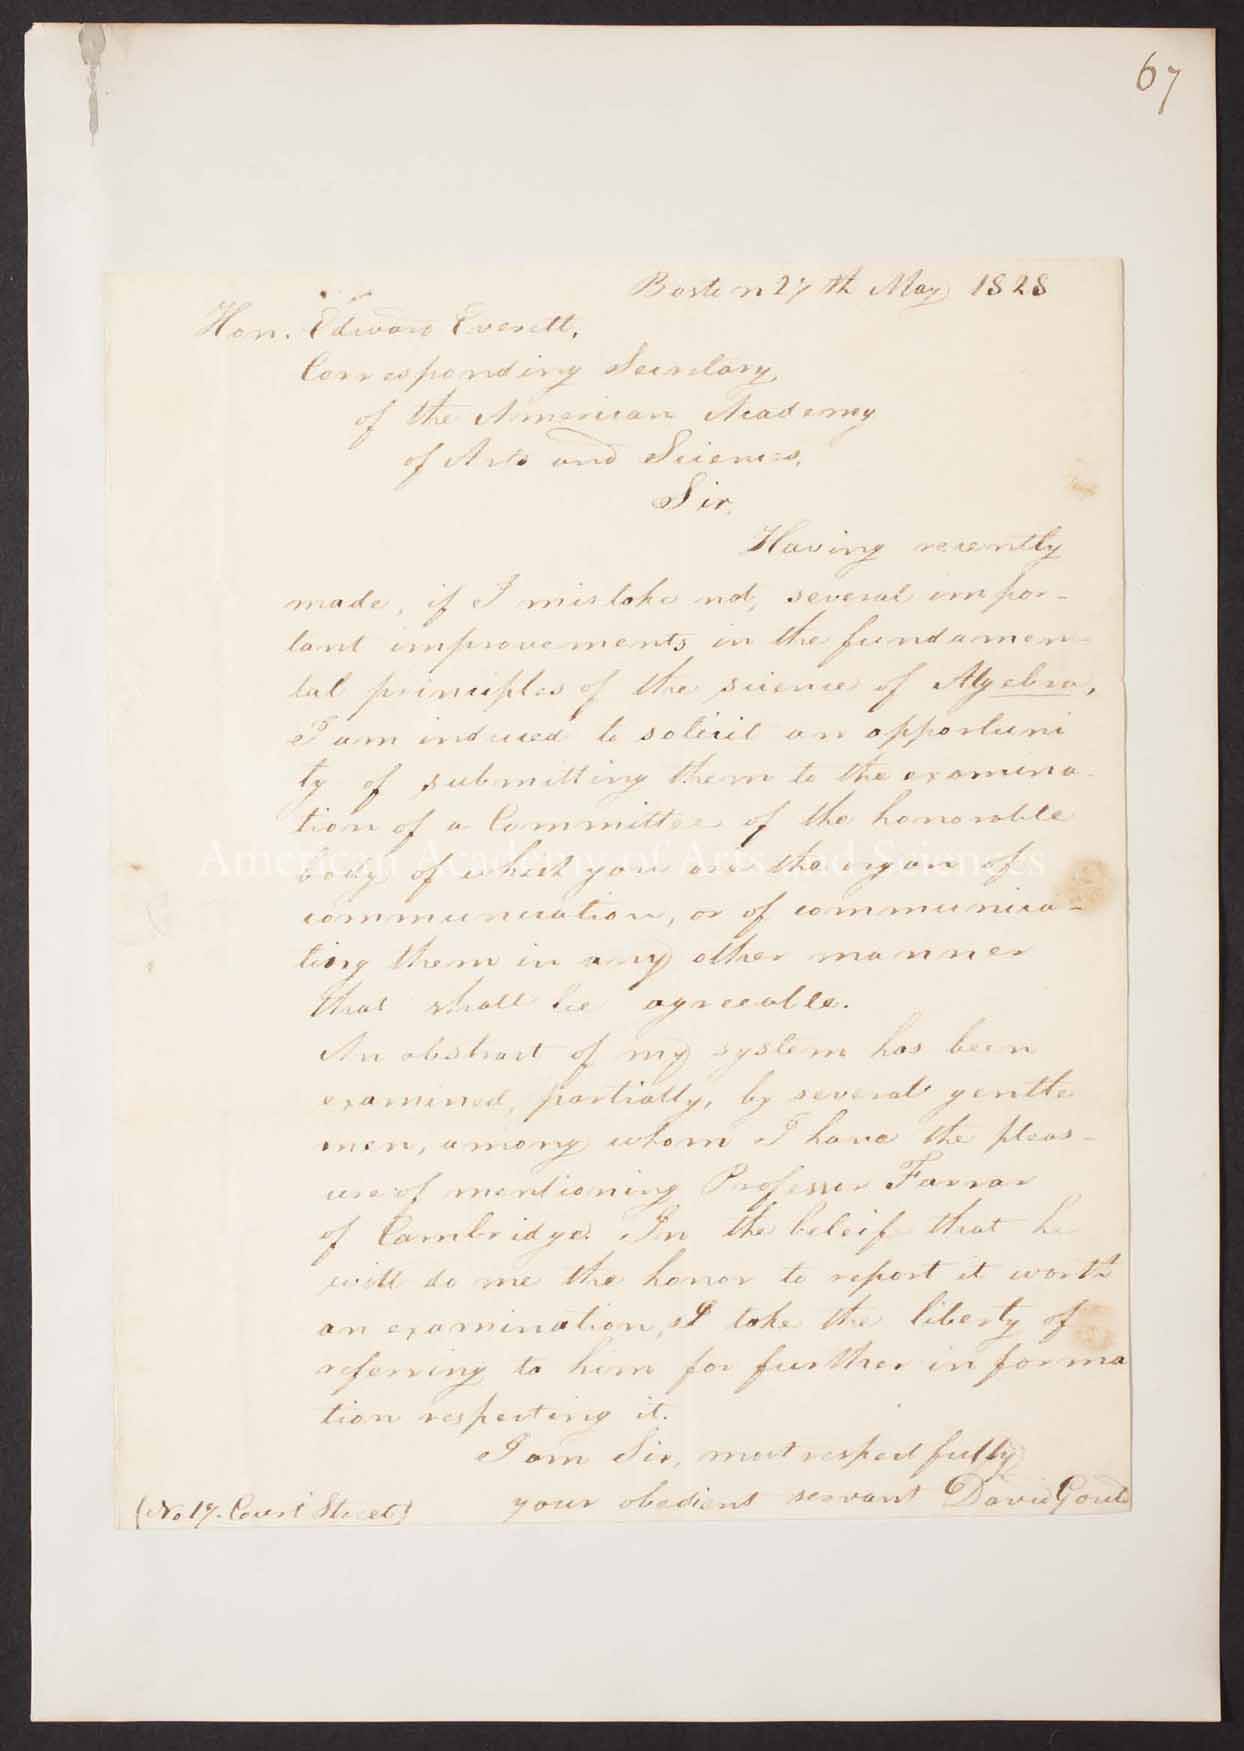 67
Boston 27th May 1828
Hon. Edward Everett,
Corresponding Secretary
of the American Academy
of Arts and Sciences.
Sir,
Having recently
made, if I mistake not, several impor-
tant improvements in the fundamen-
tal principles of the science of Algebra,
I am induced to solicit an opportuni
ty of submitting them to the examina-
tion of a Committee of the honorable
body of which you are the organ of
American Academy of Arts and Sciences
communication, or of communica-
ting them in any other manner
that shall be agreeable.
An abstract of my system has been
examined, partially, by several gentle
men, among whom I have the pleas-
ure of mentioning Professor Farrar
of Cambridge. In the beleif that he
will do me the honor to report it worth
an examination, I take the liberty of
referring to him for further informa
tion respecting it.
I am Sir, most respectfully
your obedient servant David Gould
(No 17. Court Street)